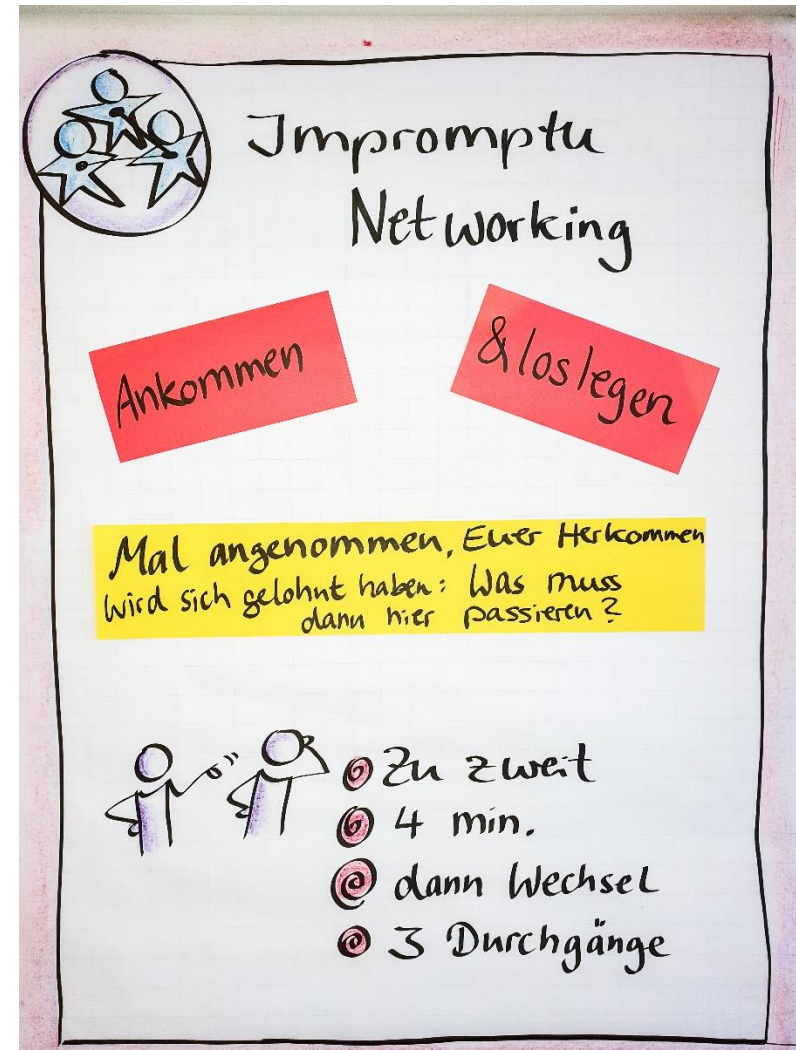 Impromptu
Networking
Ankommen
& loslegen
Mal angenommen, Euer Herkommen
wird sich gelohnt haben: Was muss
dann hier passieren?
Zu zweit
4 min.
dann Wechsel
3 Durchgänge